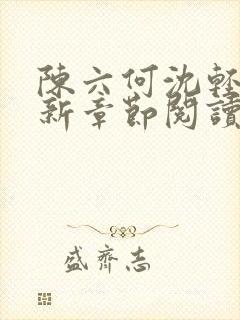 陳六何沈輕
新章節閱讀
盛齊志